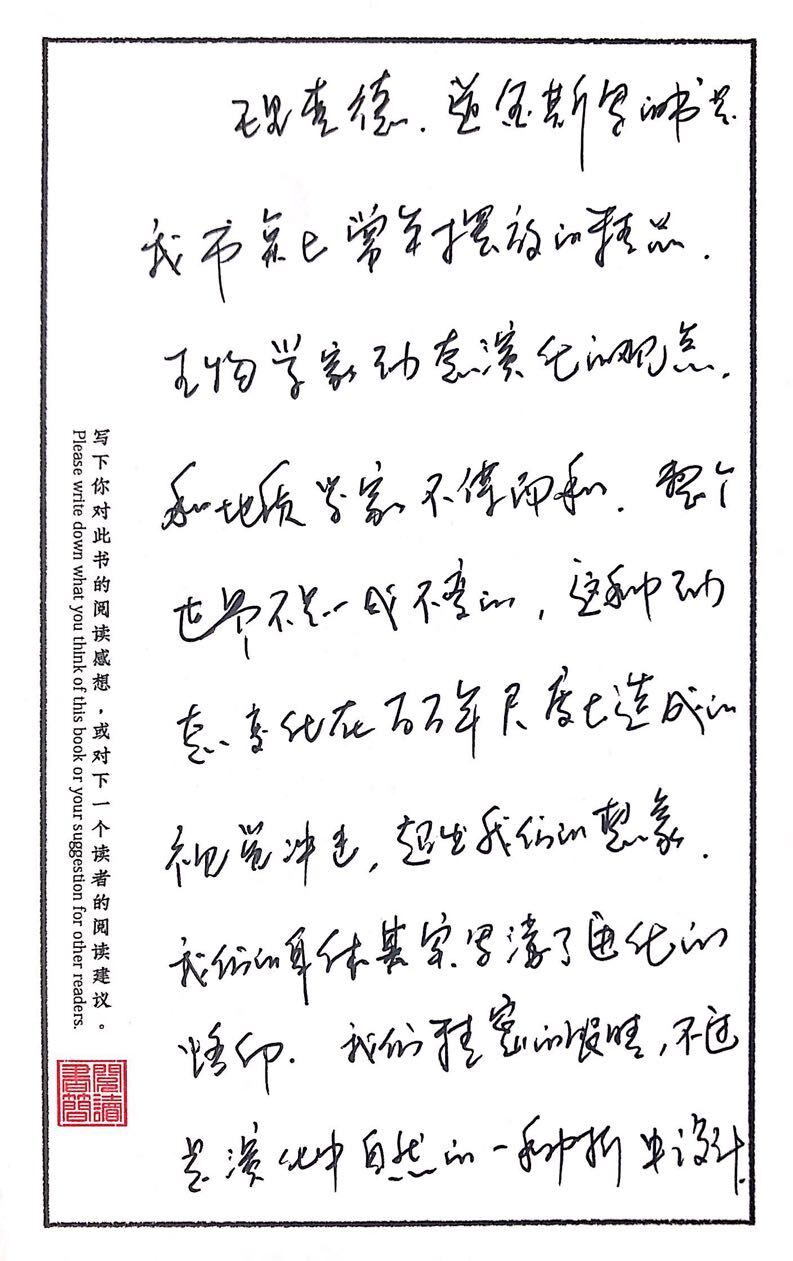 理查德.道金斯写的书是
我市案上常年摆放的精品.
生物学家动态演化的观点.
和地质学家不谋而和.整个
世界不是一成不变的,这种动
态变化在百万年尺度上造成的
视觉冲击,超出我们的想象.
我们的身体其实写满了进化的
烙印.我们精密的眼睛,不过
是演化中自然的一种折中设计.
写下你对此书的阅读感想,或对下一个读者的阅读建议。
Please write down what you think of this book or your suggestion for other readers.
閱讀書簡